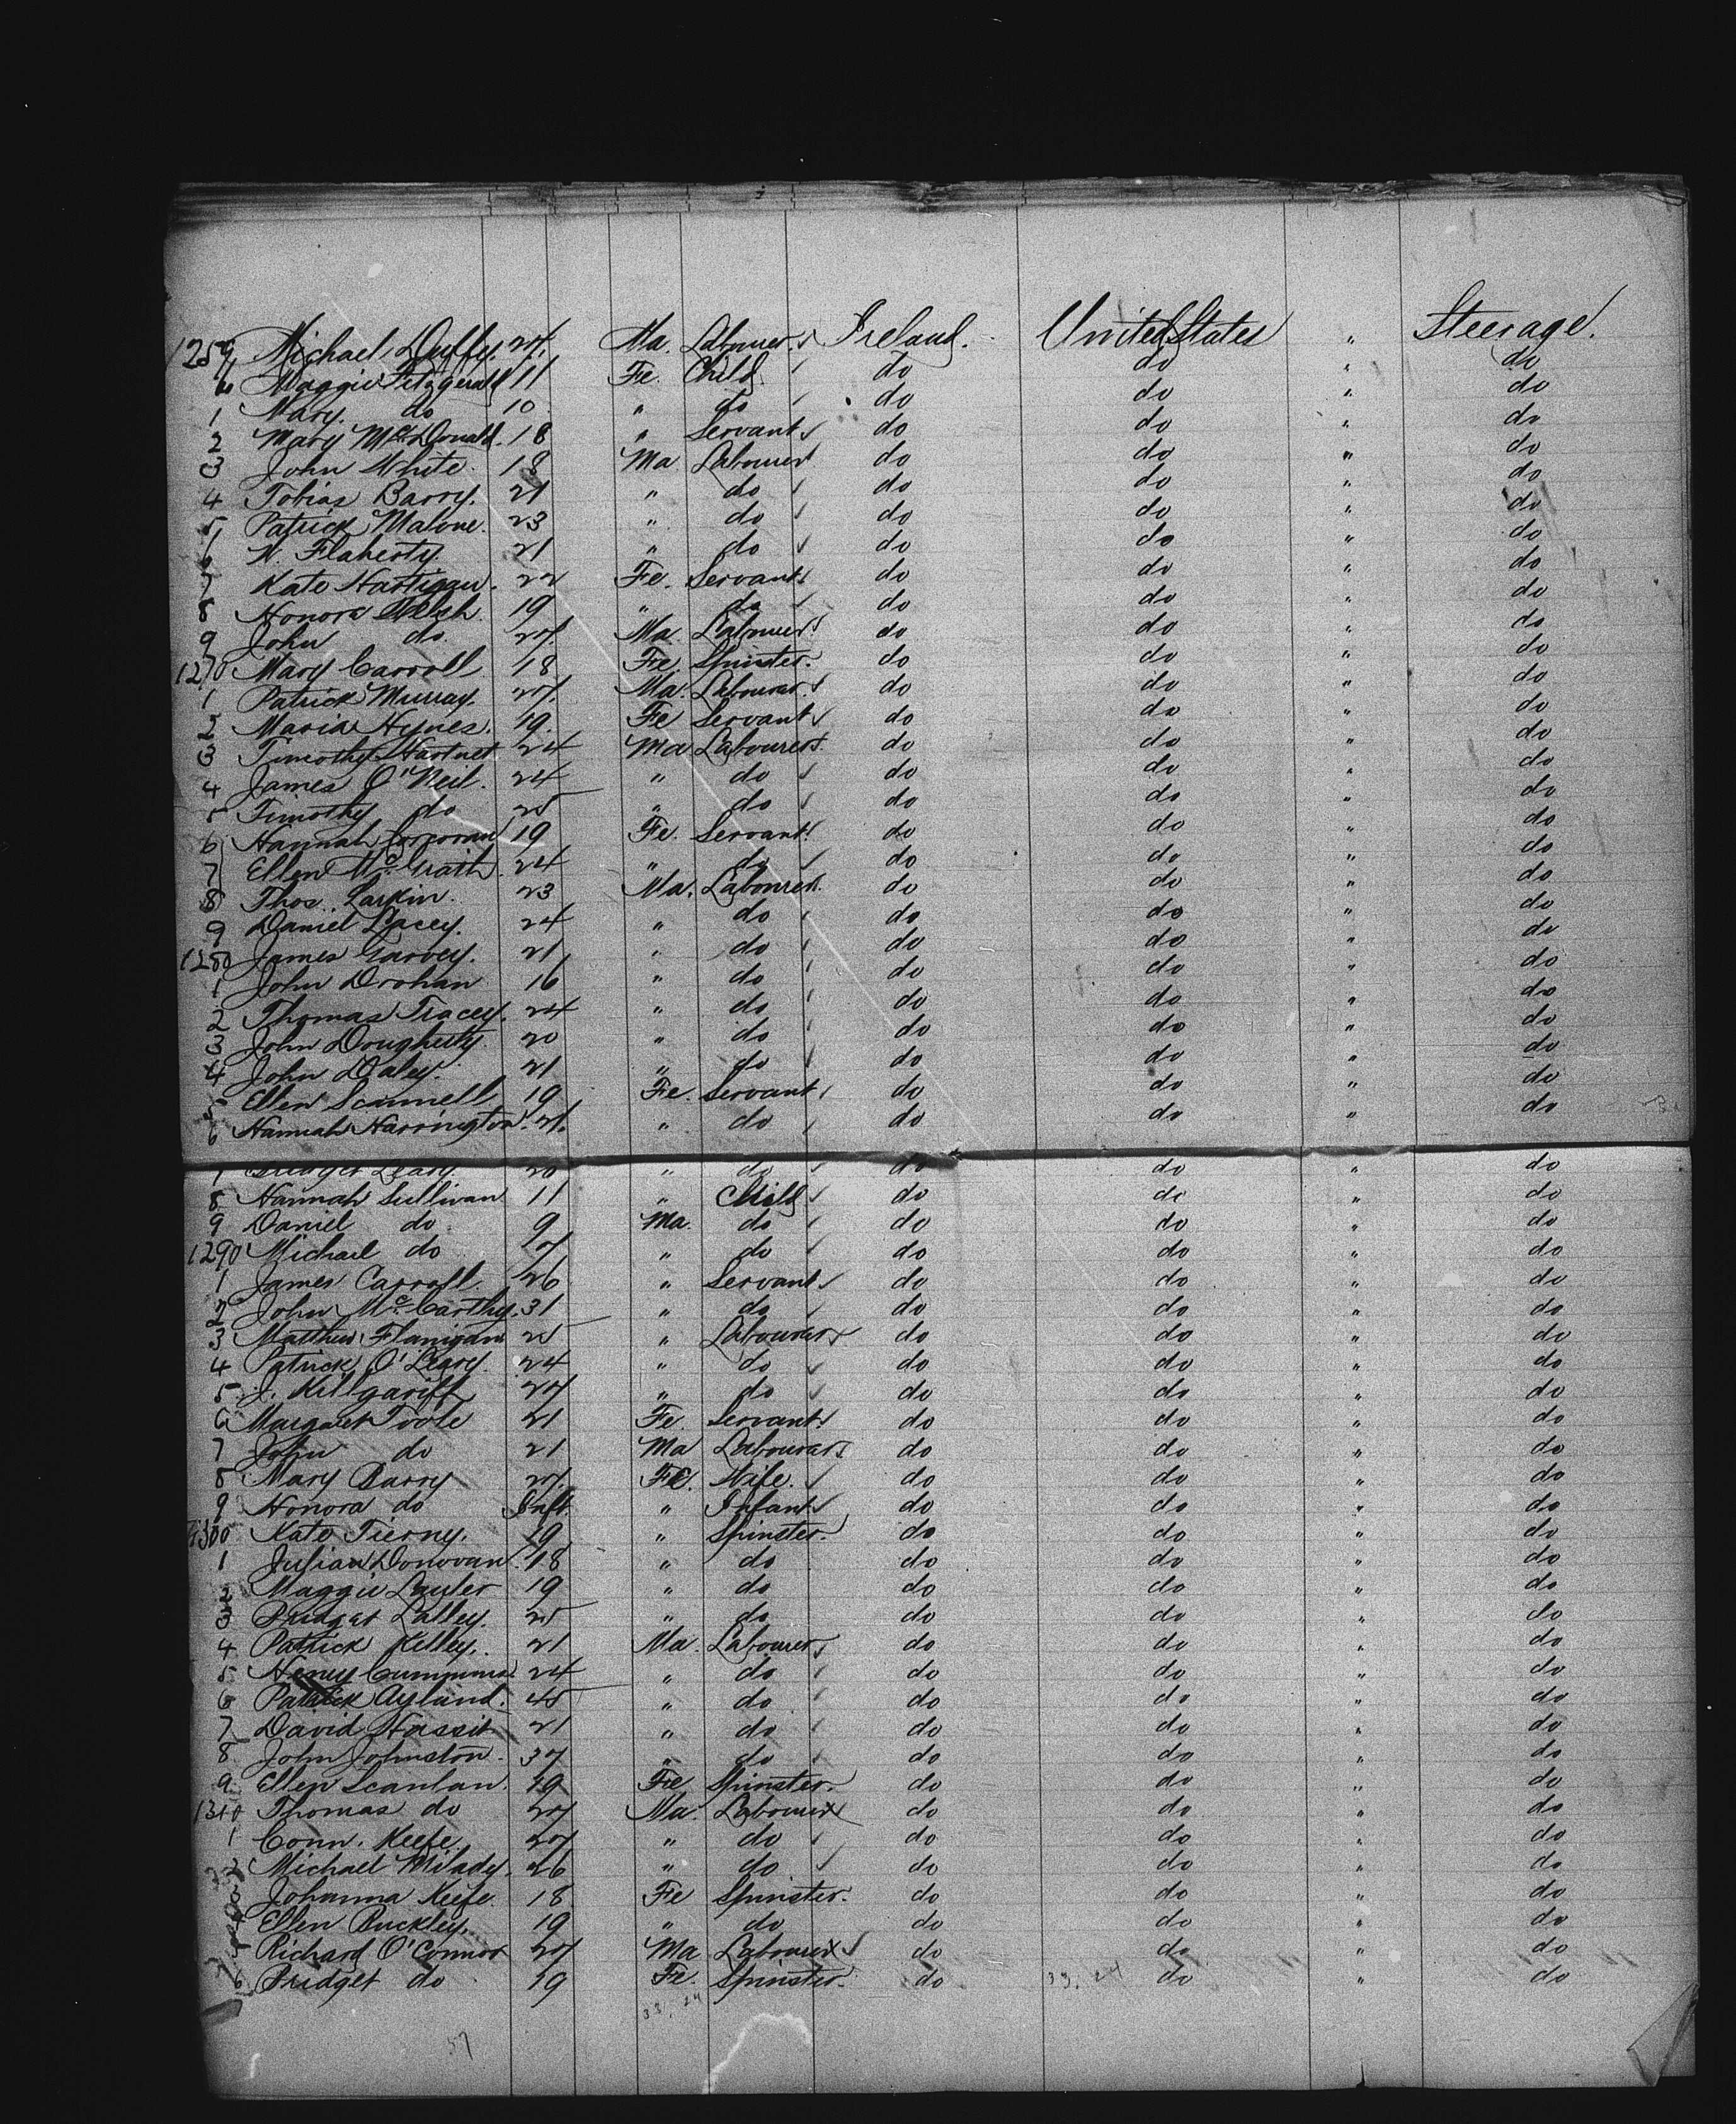 1259 Michael Duffy. 27. Ma. Labourer. Ireland. United States " Steerage.
60 Maggie Fitzgerald 11 Fe. Child. do do " do
1 Mary. do 10 " do do do " do
2 Mary McDonald. 18 " Servant do do " do
3 John White. 18 Ma Labourer do do " do
4 Tobias Barry. 21 " do do do " do
5 Patrick Malone. 23 " do do do " do
6 Flaherty 21 " do do do " do
7 Kate Hartigan. 22 Fe. Servant do do " do
8 Honora Welsh. 19 " do do do " do
9 John do. 27 Ma. Labourer do do " do
1270 Mary Carroll 18 Fe. Spinster. do do " do
1 Patrick Murray. 27. Ma. Labourer. do do " do
2 Maria Hynes. 19. Fe Servant do do " do
3 Timothy Hartnet 24 Ma Labourer do do " do
4 James O'Neil. 24 " do do do " do
5 Timothy do 25 " do do do " do
6 Hannah Corcoran 19 Fe. Servant do do " do
7 Ellen McGrath. 24 " do do do " do
8 Thos. Larkin. 23 Ma. Labourer. do do " do
9 Daniel Lacey. 24 " do do do " do
1280 James Garvey. 21 " do do do " do
1 John Drohan 16 " do do do " do
2 Thomas Tracey. 24 " do do do " do
3 John Dougherty 20 " do do do " do
4 John Daley. 21 " do do do " do
5 Ellen Scannell 19 Fe. Servant do do " do
6 Hannah Harrington. 21. " do do do " do
7 Bridget Leary. 20 " do do do " do
8 Hannah Sullivan 11 " Child do do " do
9 Daniel do 9 Ma. do do do " do
1290 Michael do 7 " do do do " do
1 James Carroll 26 " Servant do do " do
2 John McCarthy. 31 " do do do " do
3 Matthew Flanigan 25 " Labourer do do " do
4 Patrick O'Leary. 24 " do do do " do
5 J. Killgariff 27 " do do do " do
6 Margaret Toole 21 Fe. Servant do do " do
7 John do 21 Ma Labourer do do " do
8 Mary Barry 27. Fe. Wife. do do " do
9 Honora do Inft. " Infant do do " do
1300 Kate Tierny. 19 " Spinster. do do " do
1 Julian Donovan 18 " do do do " do
2 Maggie Lawler 19 " do do do " do
3 Bridget Lalley. 25 " do do do " do
4 Patrick Kelley. 21 Ma. Labourer do do " do
5 Henry Cummins 24 " do do do " do
6 Patrick Aylund. 45 " do do do " do
7 David Hassit 21 " do do do " do
8 John Johnston. 37 " do do do " do
9 Ellen Scanlan. 19 Fe Spinster. do do " do
1310 Thomas do 27 Ma. Labourer do do " do
1 Conn. Keefe 27 " do do do " do
2 Michael Milady. 26 " do do do " do
3 Johanna Keefe 18 Fe Spinster. do do " do
4 Ellen Buckley. 19 " do do do " do
5 Richard O'Connor 27 Ma Labourer do do " do
6 Bridget do 19 Fe. Spinster. do do " do
57